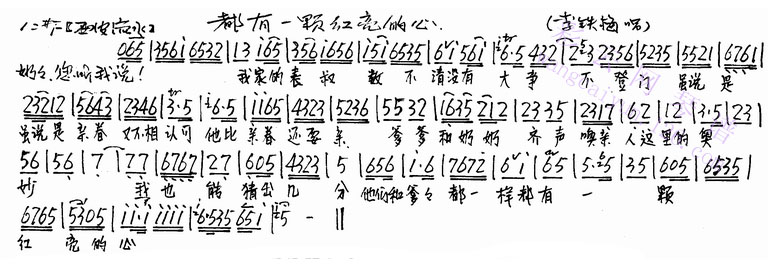 都有一颗红亮的心
(李铁梅唱)
1=#F [西皮流水]
065|3561 6532|13 165|3561656|1516535|6 1 561|6·5 432|2·3 2356|5235|5521|6761|
奶奶,您听我说! 我家的表叔数不清没有大事不登门虽说是
23212|5643|2346|3·5|6·5|1165|4323|5236|5532|1635 212|2335|2317|612|12|3·5|23|
虽说是亲眷又不相认可他比亲眷还要亲爷爷和奶奶齐声唤亲人这里的奥
56|56|7|77|6767|27|605|4323|5|656|1·6|7672|6 1|65|5·5|35|605|6535|
妙我也能猜出几分他们和爷爷都一样都有一颗
6765|5305|11·1 1111|6·535 651|5 - ||
红亮的心